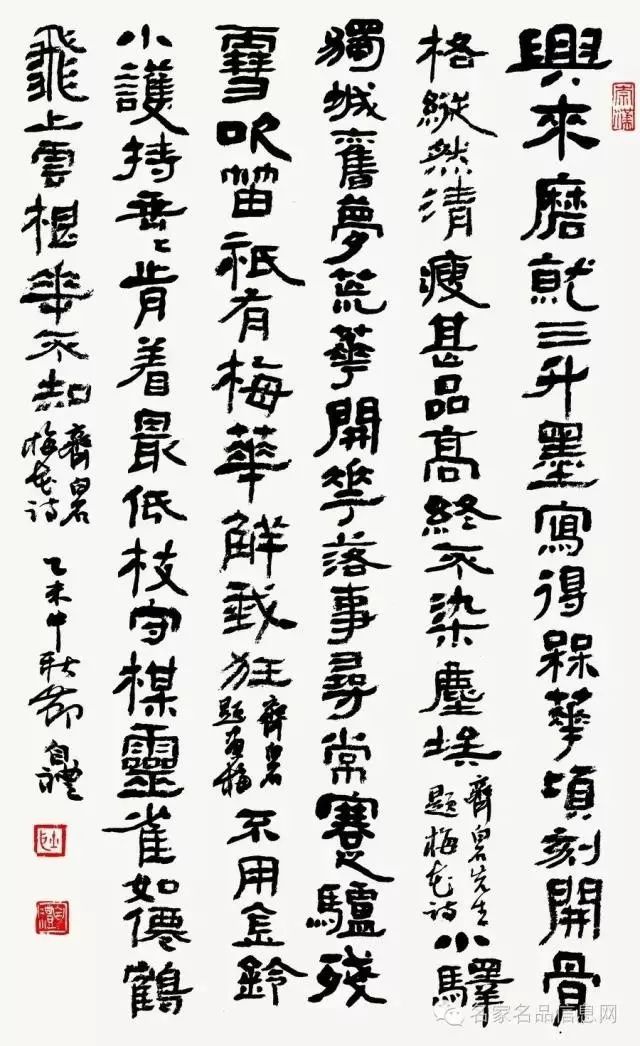 興來磨就三升墨寫得槑華頃刻開骨
格縱然清瘦甚品高終不染塵埃 齊白石先生題梅花詩 小驛
城舊夢荒華開花落事尋常蹇驢殘
雪吹笛祇有梅華解我狂 齊白石題画梅 不用金鈴
小護持垂〻肯着最低枝守楳靈雀如僊鶴
飛上雲根華不知 齊白石梅花詩 乙未中秋節
名家名品信息网